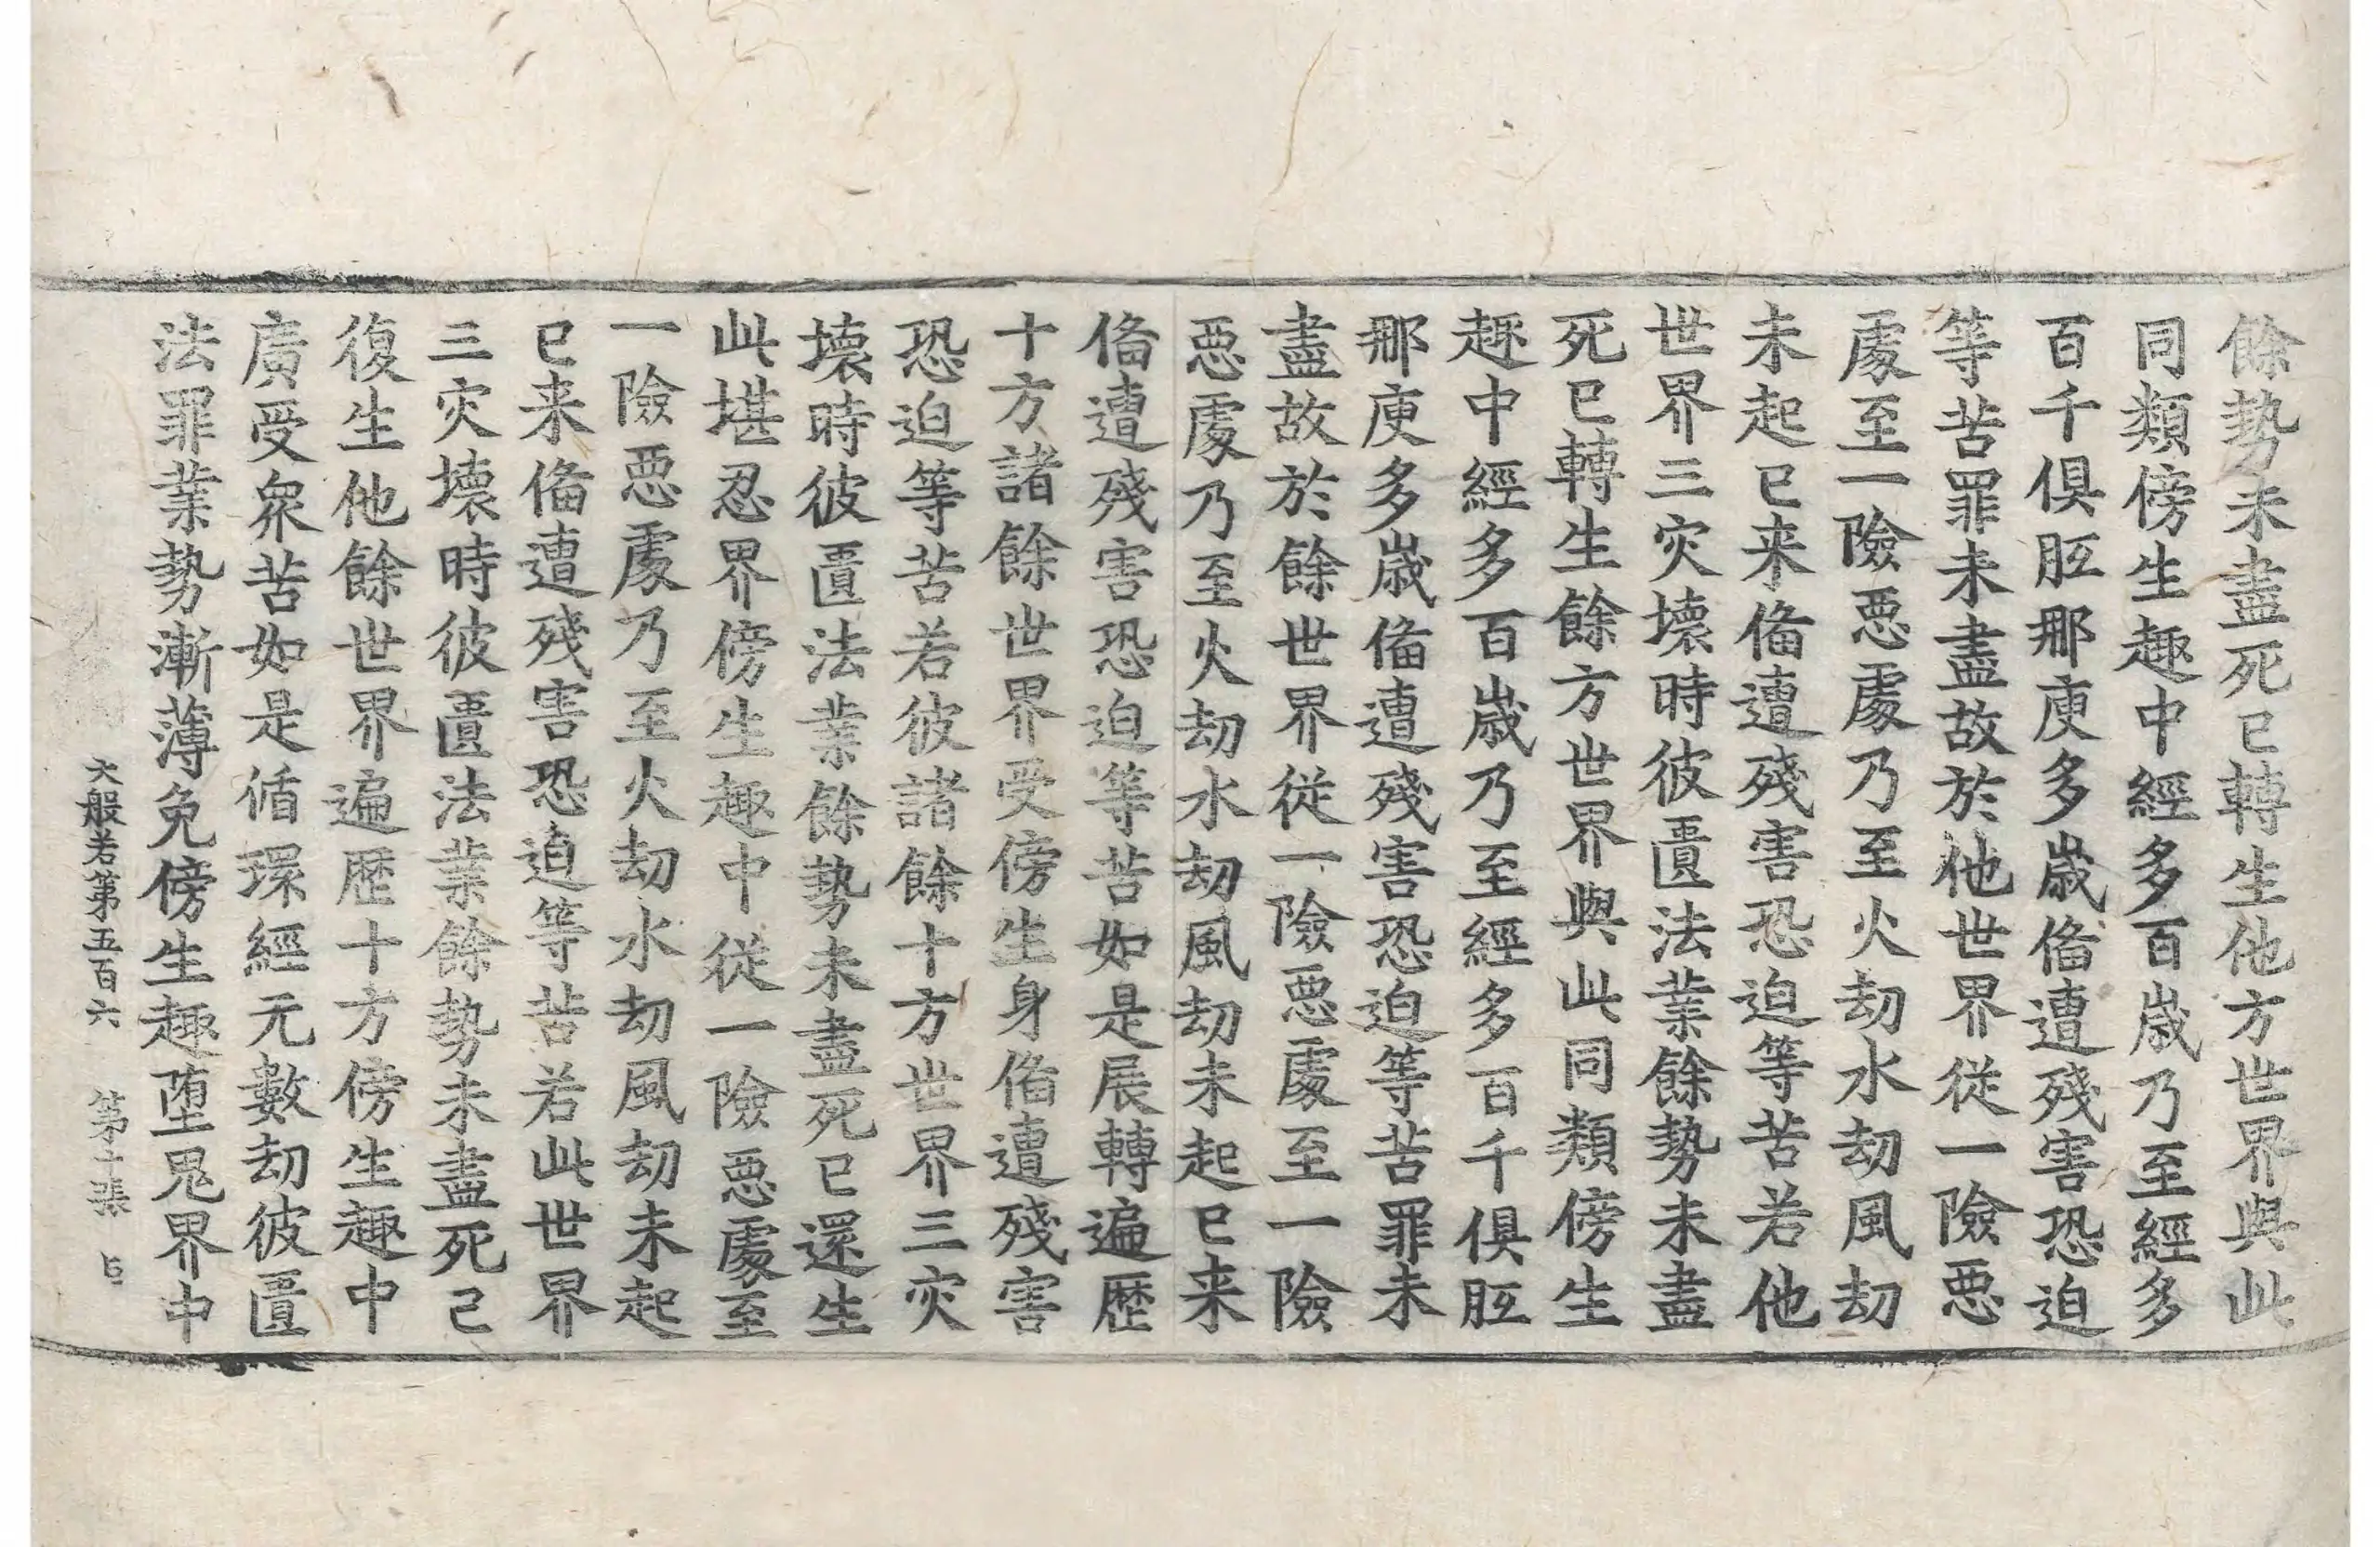 餘勢未盡死已轉生他方世界與此
同類傍生趣中經多百歲乃至經多
百千俱胝那庾多歲俻遭殘害恐迫
等苦罪未盡故於他世界從一險惡
處至一險惡處乃至火劫水劫風劫
未起已来俻遭殘害恐迫等苦若他
世界三灾壞時彼匱法業餘勢未盡
死已轉生餘方世界與此同類傍生
趣中經多百歲乃至經多百千俱胝
那庾多歲俻遭殘害恐迫等苦罪未
盡故於餘世界從一險惡處至一險
惡處乃至火劫水劫風劫未起已来
俻遭殘害恐迫等苦如是展轉遍歷
十方諸餘世界受傍生身俻遭殘害
恐迫等苦若彼諸餘十方世界三灾
壞時彼匱法業餘勢未盡死已還生
此堪忍界傍生趣中從一險惡處至
一險惡處乃至火劫水劫風劫未起
已来俻遭殘害恐迫等苦若此世界
三灾壞時彼匱法業餘勢未盡死已
復生他餘世界遍歷十方傍生趣中
廣受眾苦如是循環經无數劫彼匱
法罪業勢漸薄免傍生趣堕鬼界中
大般若第五百六 第十張